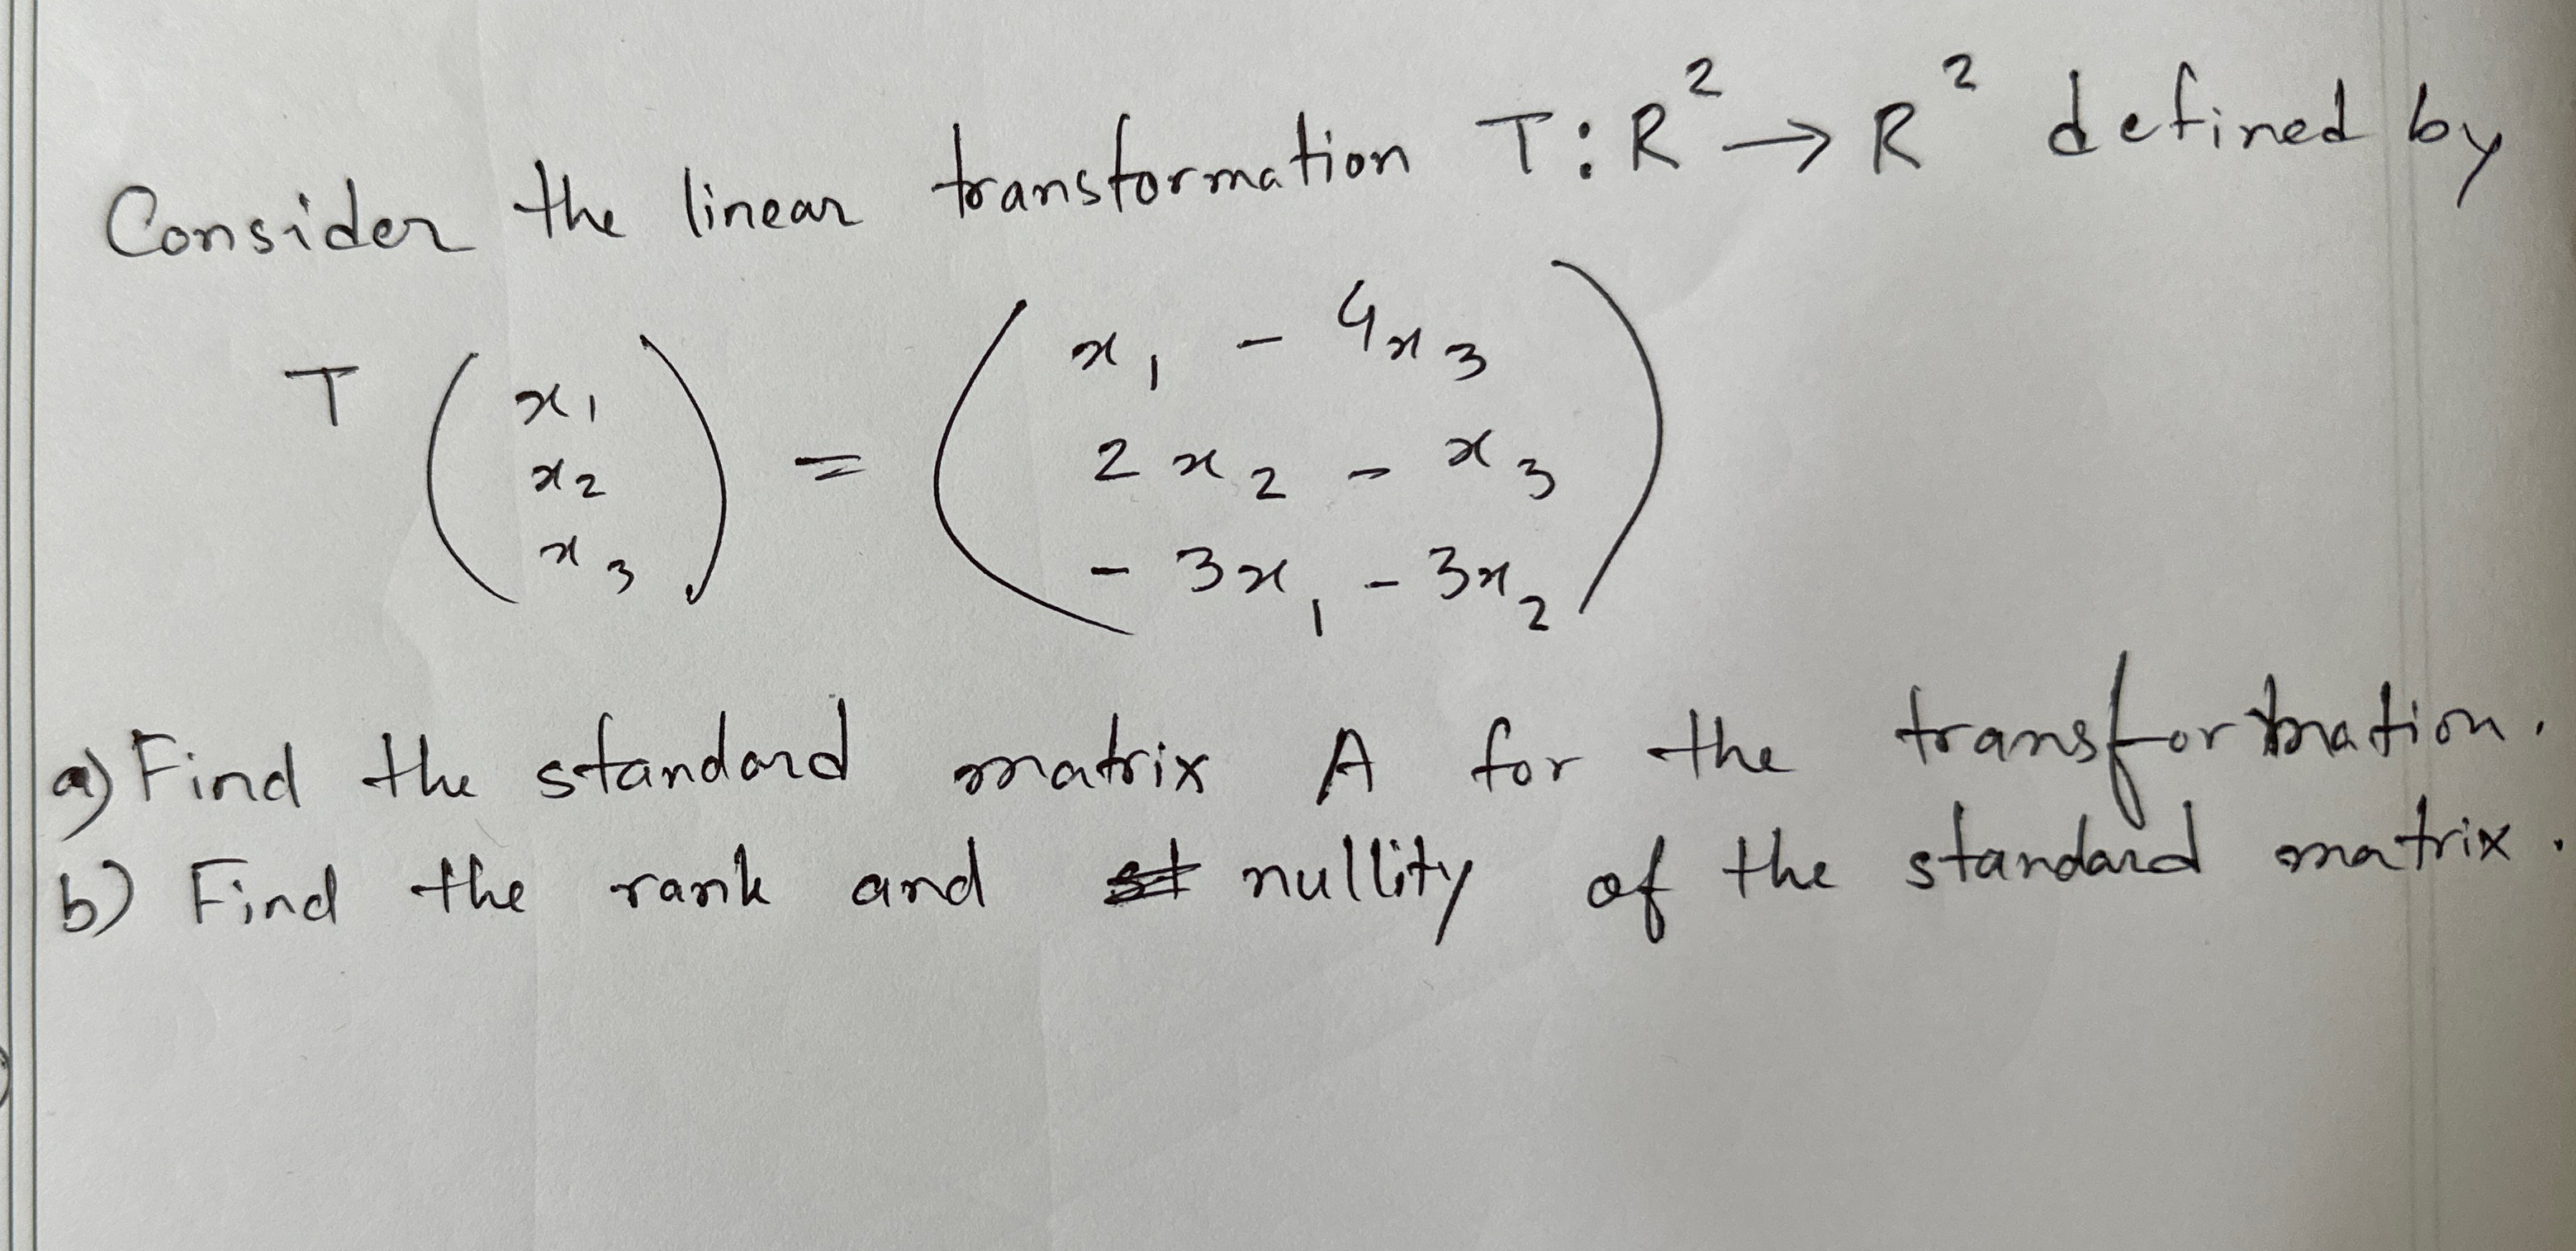 Consider the linear transformation T: R² → R² defined by
T ( x₁ x₂ x₃ ) = ( x₁ - 4x₃
2x₂ - x₃
- 3x₁ - 3x₂ )
a) Find the standard matrix A for the transformation.
b) Find the rank and nullity of the standard matrix.